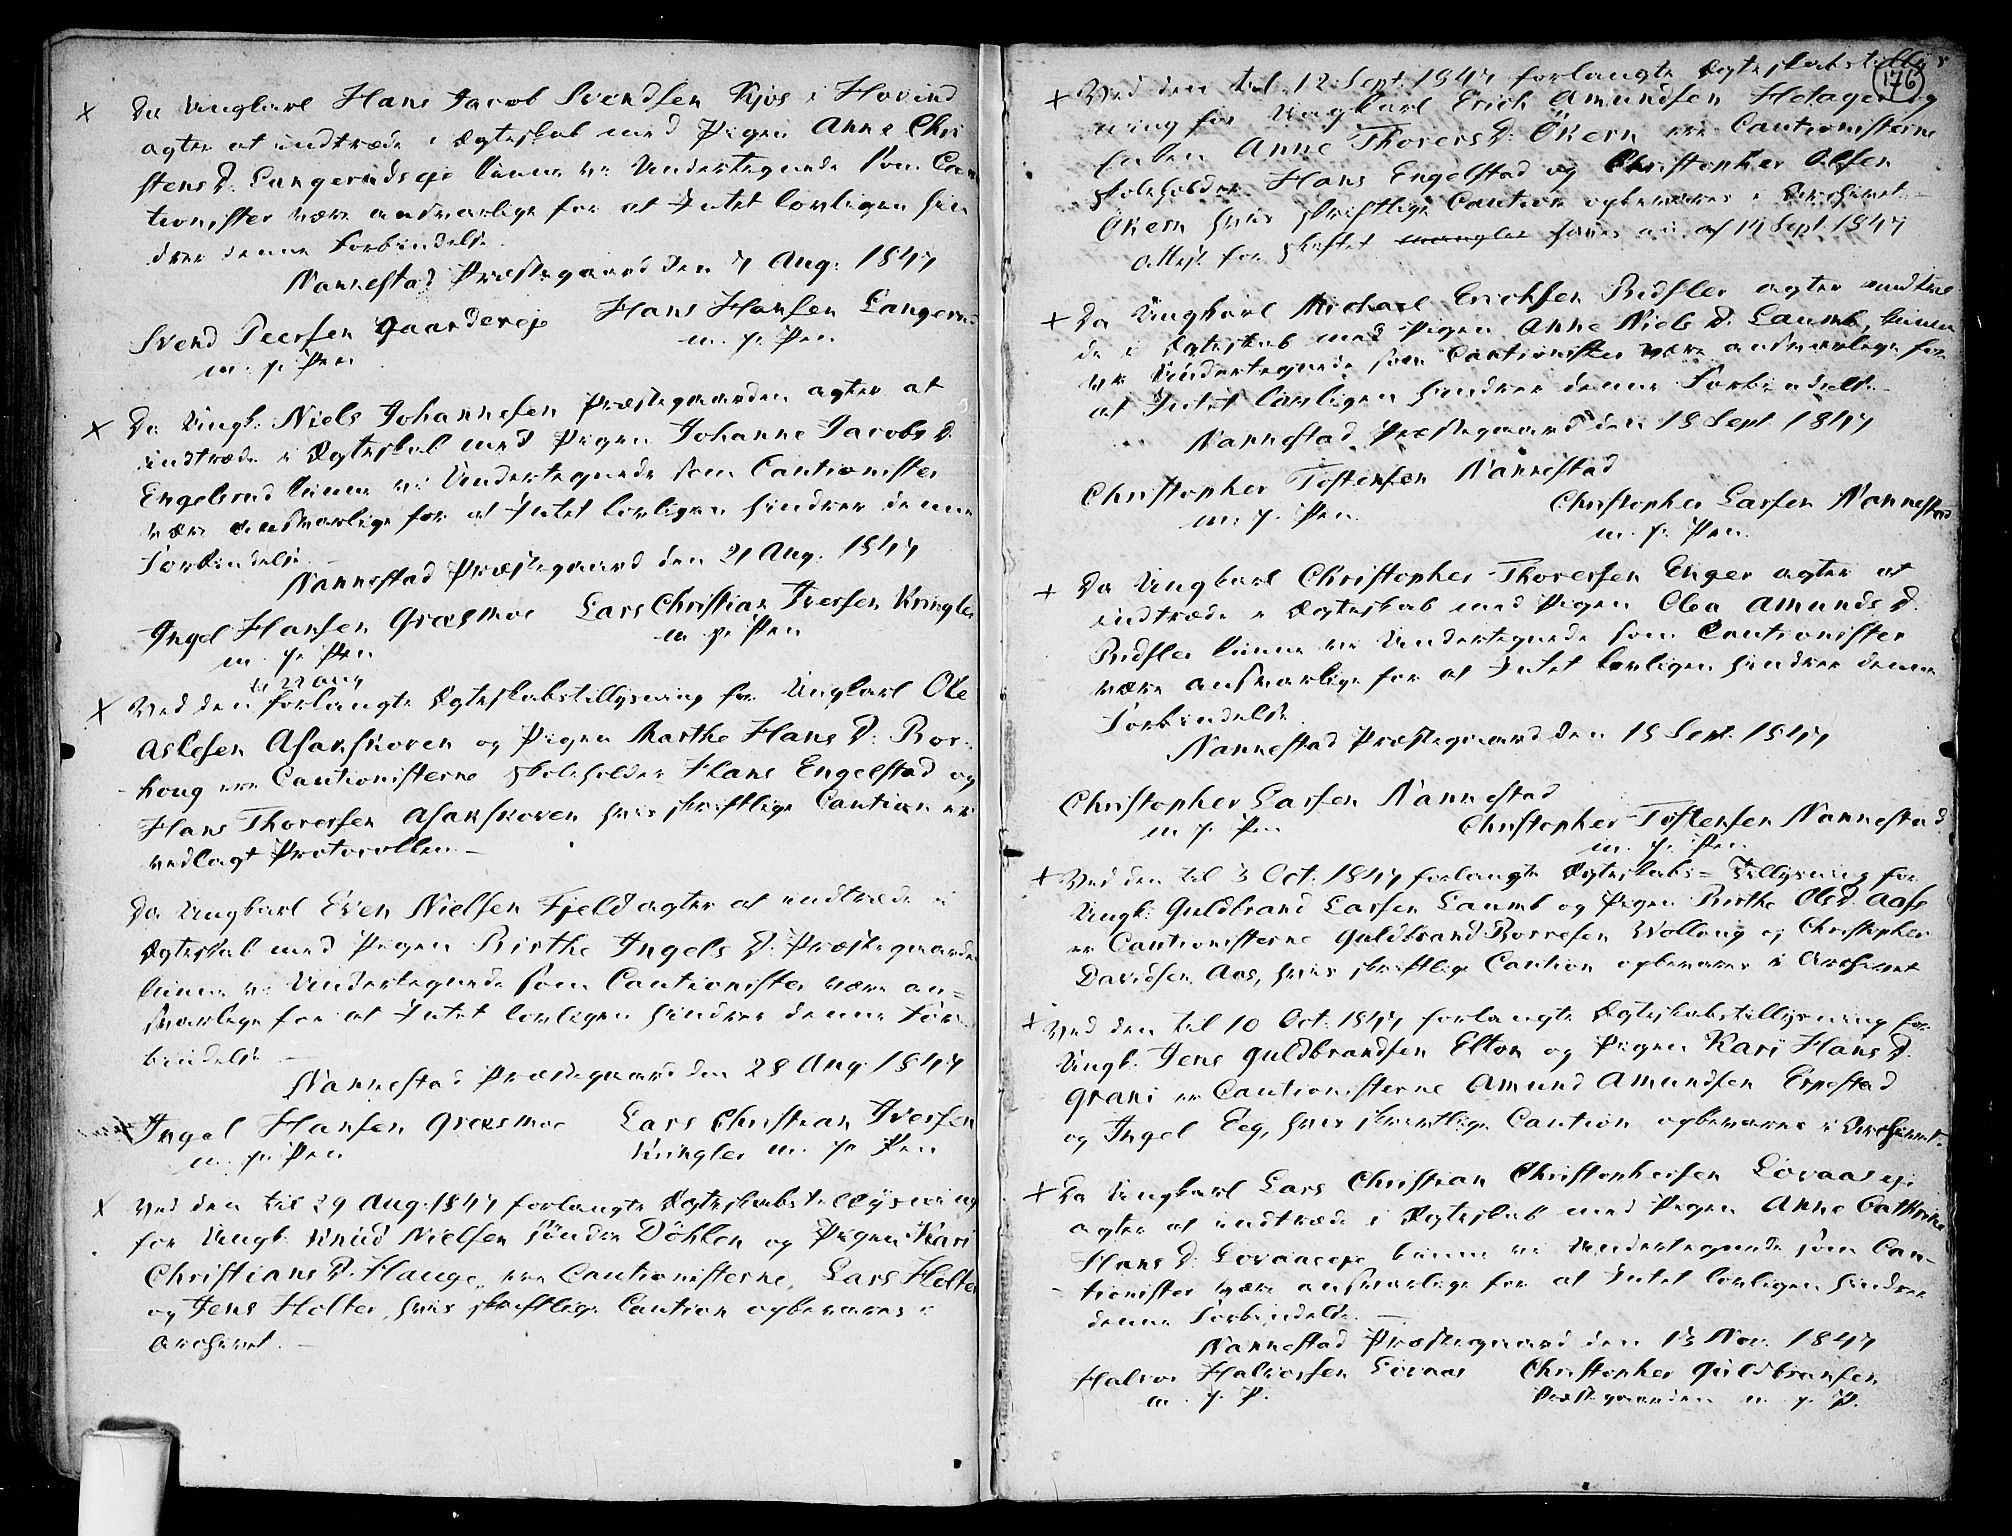 Da Ungkarl Hans Jacob Svendsen Kjos i Hovind
agter at indtræde i Ægteskab med Pigen Anne Chri
stens D. Langerudseje kunne vi Undertegnede som Cau
tionister være ansvarlige for at Intet lovligen hin
drer denne Forbindelse.
Nannestad Præstegaard den 7 Aug. 1847
Svend Peersen Gaardereje Hans Hansen Langerud
m. p. Pen m. p. Pen
Da Ungk. Niels Johannesen Præstegaarden agter at
indtræde i Ægteskab med Pigen Johanne Jacobs D.
Engelsrud kunne vi Undertegnede som Cautionister
være ansvarlige for at Intet lovligen hindrer denne
Forbindelse
Nannestad Præstegaard den 21 Aug. 1847
Ingel Hansen Græsmoe Lars Christian Iversen Kringler
m. p. Pen m. p. Pen
til 22 Aug
Ved den forlangte Ægteskabstillysning for Ungkarl Ole
Aslesen Asakskoven og Pigen Marthe Hans D. Ror-
houg ere Cautionisterne Skoleholder Hans Engelstad og
Hans Thoresen Asakskoven hvis skriftlige Caution er
vedlagt Protocollen. –
Da Ungkarl Even Nielsen Fjeld agter at indtræde i
Ægteskab med Pigen Birthe Ingels D. Præstegaarden
kunne vi Undertegnede som Cautionister være an=
svarlige for at Intet lovligen hindrer denne For-
bindelse –
Nannestad Præstegaard den 28 Aug. 1847
Ingel Hansen Græsmoe Lars Christian Iversen
m. p. Pen Kringler m. p. Pen
Ved den til 29 Aug. 1847 forlangte Ægteskabstillysning
for Ungk. Knud Nielsen søndre Döhlen og Pigen Kari
Christians D. Hauge, ere Cautionisterne, Lars Holter
og Jens Holter, hvis skriftlige Caution opbevares i
Archivet. –
176
Ved den til 12 Sept. 1847 forlangte Ægteskabstillys
ning for Ungkarl Erich Amundsen Holager og
Anne Thorers D. Ökern ere Cautionisterne
Skoleholder Hans Engelstad og Christopher Olsen
Ökern hvis skriftlige Caution opbevares i Archivet –
Attest for Skiftet mangler haves nu af 14 Sept. 1847
Da Ungkarl Michael Erichsen Ridsler agter indtræ
de i Ægteskab med Pigen Anne Niels D. Laumb, kunne
vi Undertegnede som Cautionister være ansvarlige for
at Intet lovligen hindrer denne Forbindelse
Nannestad Præstegaard den 18 Sept 1847
Christopher Tostensen Nannestad
m. p. Pen. Christopher Larsen Nannestad
m. p. Pen.
Da Ungkarl Christopher Thoresen Enger agter at
indtræde i Ægteskab med Pigen Olea Amunds D.
Ridsler kunne vi Undertegnede som Cautionister
være ansvarlige for at Intet lovligen hindrer denne
Forbindelse.
Nannestad Præstegaard den 18 Sept. 1847
Christopher Larsen Nannestad
m p Pen Christopher Tostensen Nannestad
m. p. Pen.
Ved den til 3 Oct. 1847 forlangte Ægteskabs= Tillysning for
Ungk. Guldbrand Larsen Laumb og Pigen Birthe Ols D. Aas
er Cautionisterne Guldbrand Borresen Wollaug og Christopher
Davidsen Aas, hvis skriftlige Caution opbevares i Archivet
Ved den til 10 Oct. 1847 forlangte Ægteskabstillysning for
Ungk. Jens Guldbrandsen Elton og Pigen Kari Hans D.
Grani er Cautionisterne Amund Amundsen Erpestad
og Ingel Eeg, hvis skriftlige Caution opbevares i Archivet.
Da Ungkarl Lars Christian Christophersen Lovaaseje
agter at indtræde i Ægteskab med Pigen Anne Cathrine
Hans D. Lovaaseje kunne vi Undertegnede som Cau-
tionister være ansvarlige for at Intet lovligen hindrer
denne Forbindelse. –
Nannestad Præstegaard den 13 Nov. 1847
Halvor Halvorsen Lovaas Christopher Guldbransen
m. p. P. Præstegaarden m. p. P.